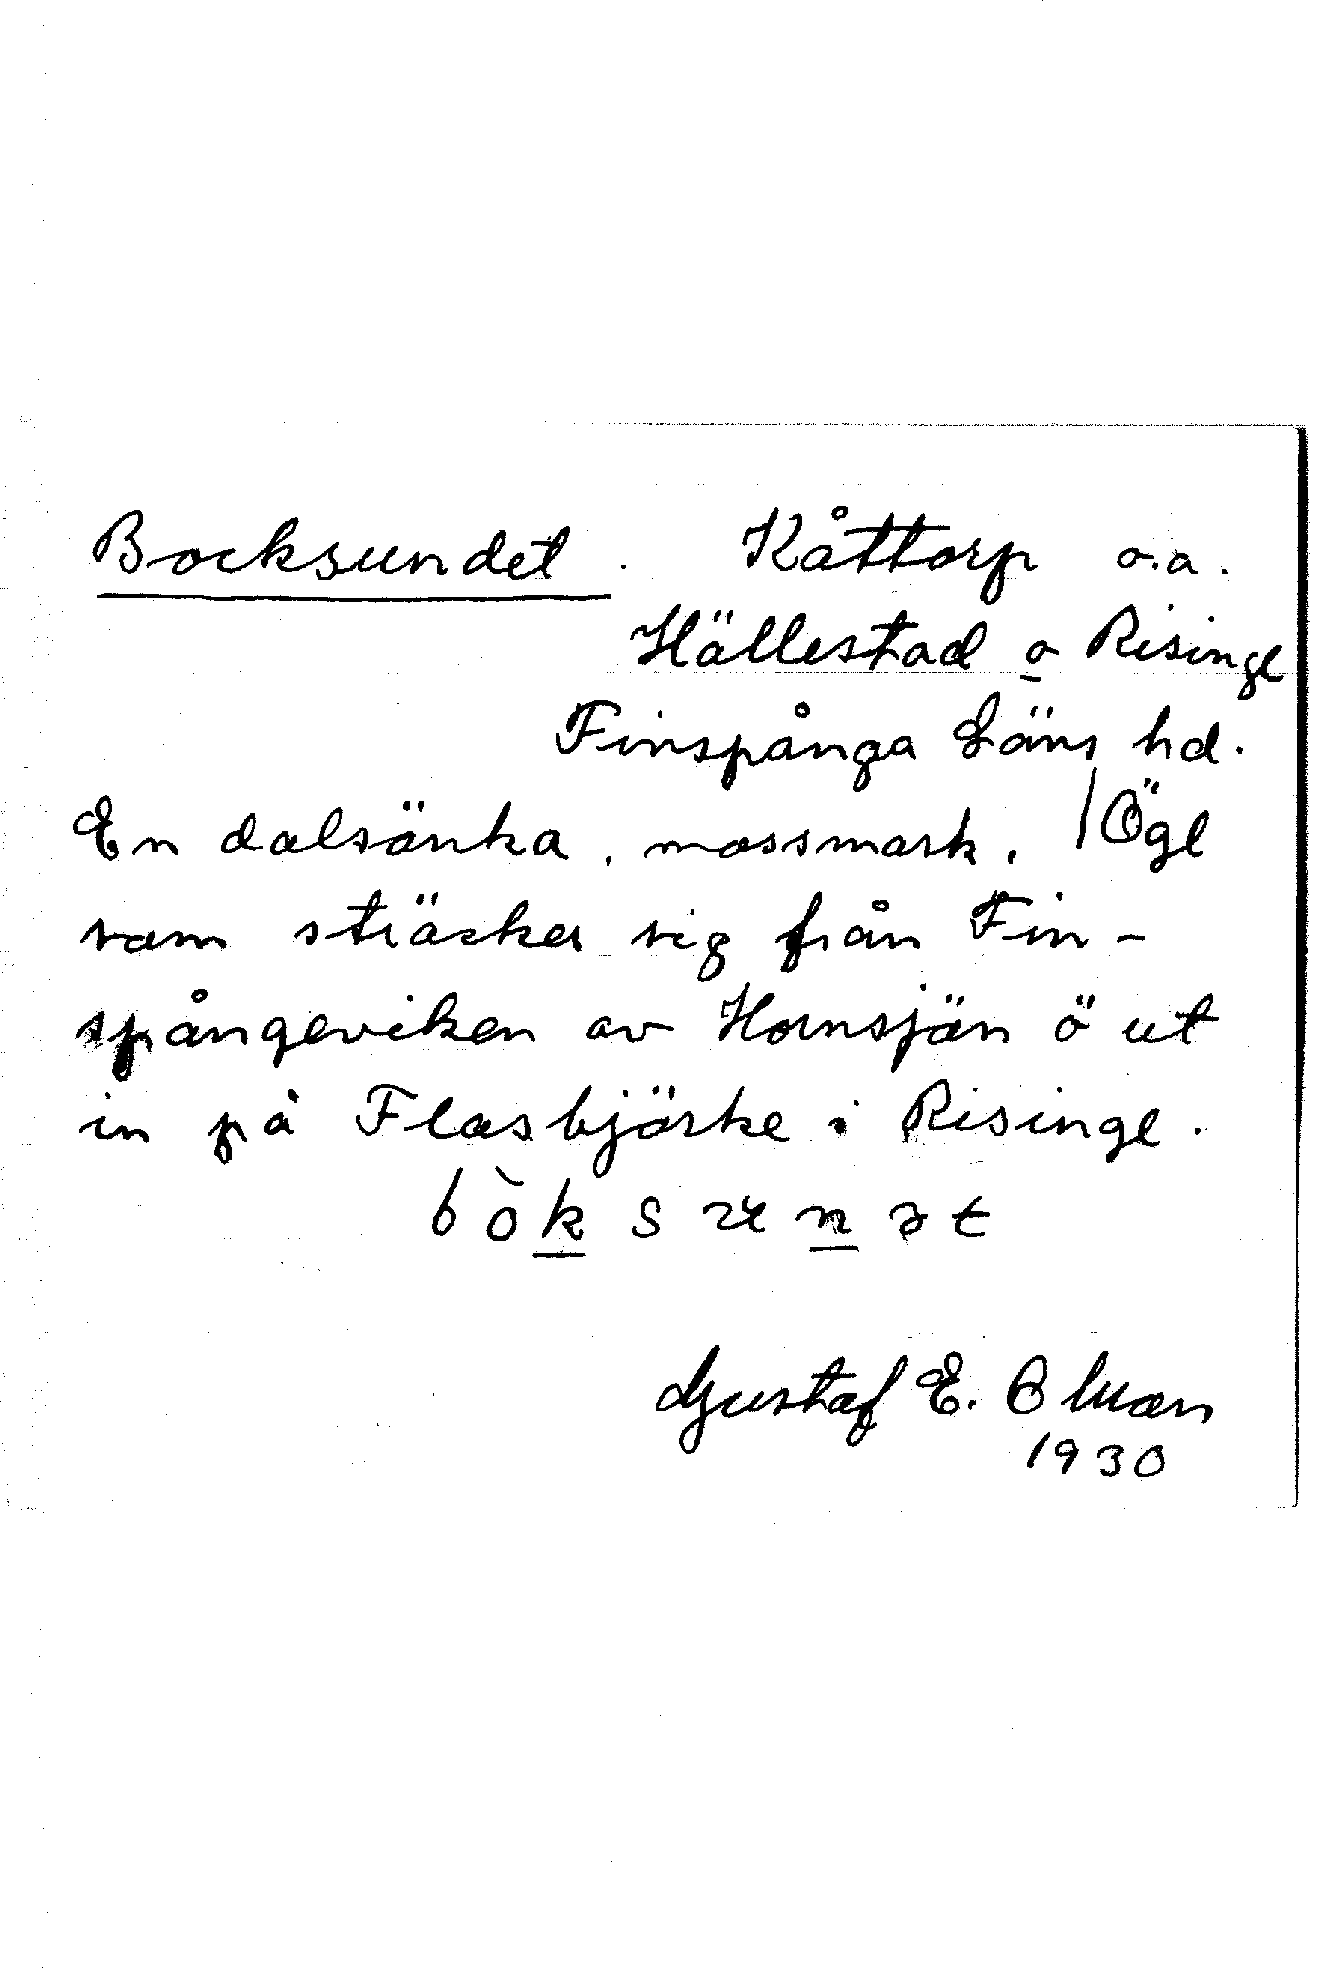 Bocksundet. Kåttorp o.a.
Hällestad o Risinge
Finspånga Läns hd.
En dalsänka, mossmark, / Ögl
som sträcker sig från Fin-
spångeviken av Hornsjön ö ut
in på Flasbjörke i Risinge.
bòk s u n ə t
Gustaf E.
1930